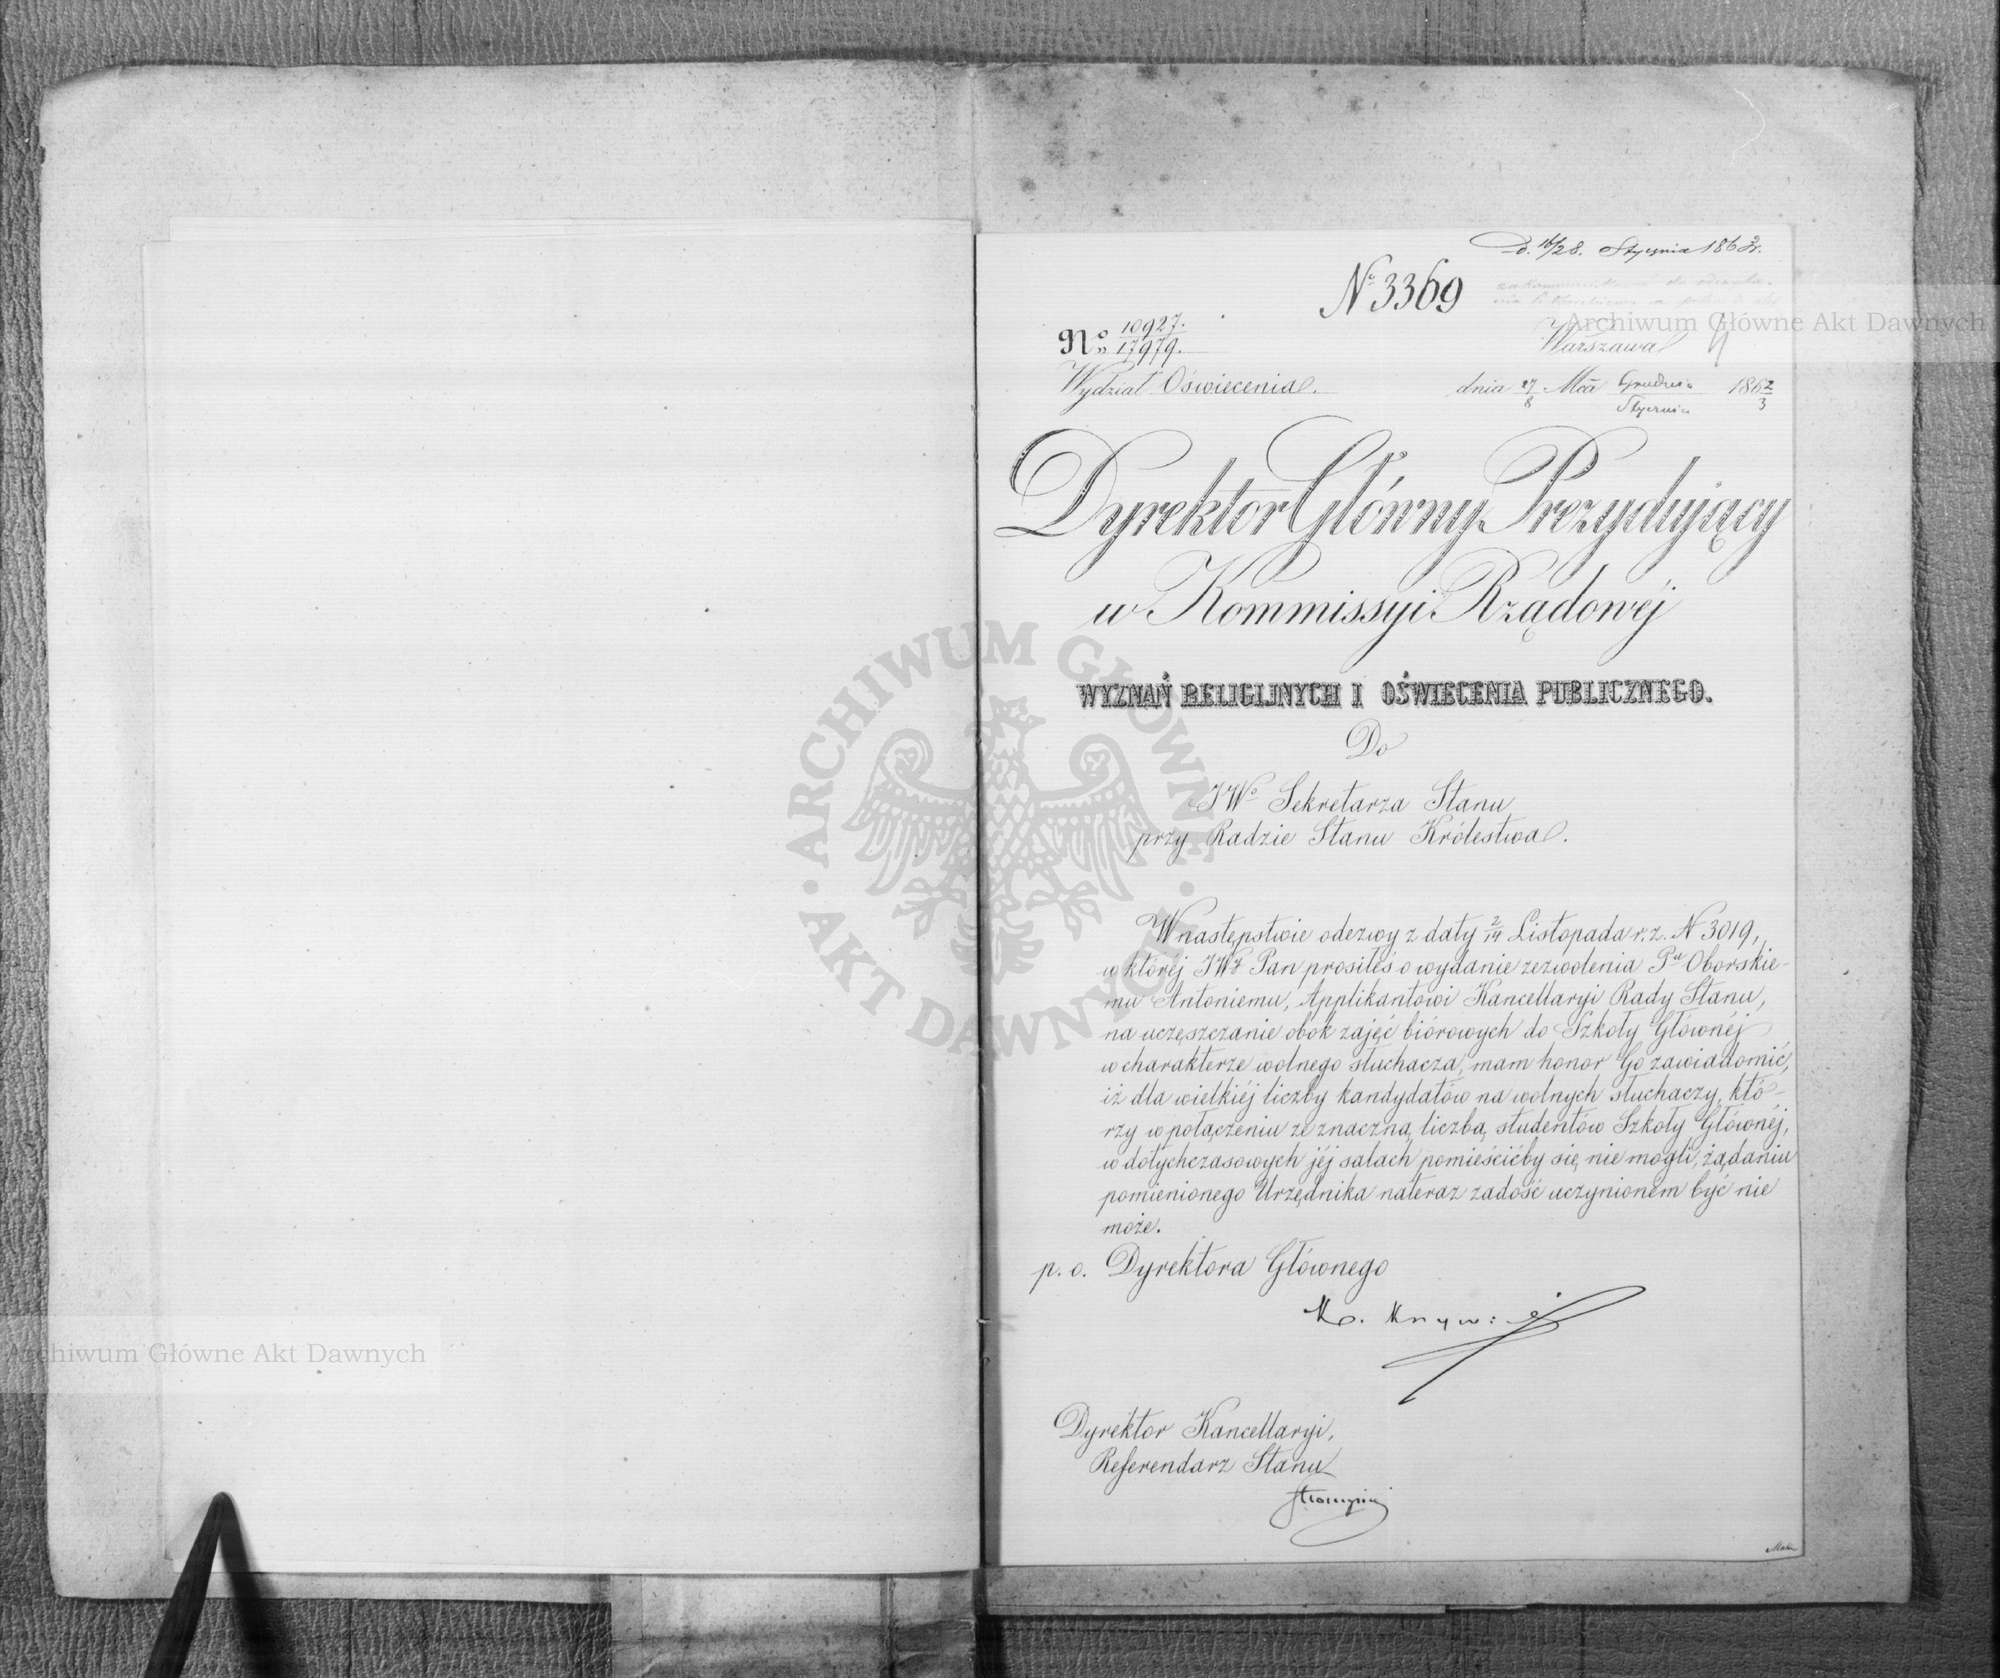 D. 16/28. Stycznia 1863 r.
No 3369
zakommunikować do
Warszawa
No 10927./17979.
Wydział Oświecenia.
dnia 27/8 Mca Grudnia/Stycznia 1862/3
Dyrektor Główny Prezydujący
w Kommissyi Rządowéj
WYZNAŃ RELIGIJNYCH I OŚWIECENIA PUBLICZNEGO.
Do
JWo Sekretarza Stanu
przy Radzie Stanu Królestwa.
W następstwie odezwy z daty 2/14 Listopada r. z. N 3019,
w któréj JW Pan prosiłeś o wydanie zezwolenia Pu Oborskie-
mu Antoniemu, Applikantowi Kancellaryi Rady Stanu,
na uczęszczanie obok zajęć biórowych do Szkoły Głównéj
w charakterze wolnego słuchacza, mam honor Go zawiadomić,
iż dla wielkiéj liczby kandydatów na wolnych słuchaczy, któ-
rzy w połączeniu ze znaczną liczbą studentów Szkoły Głównéj,
w dotychczasowych jéj salach pomieścićby się nie mogli, żądaniu
pomienionego Urzędnika nateraz zadość uczynionem być nie
może.
p. o. Dyrektora Głównego
Dyrektor Kancellaryi,
Referendarz Stanu
Archiwum Główne Akt Dawnych
Archiwum Główne Akt Dawnych
ARCHIWUM GŁÓWNE · AKT DAWNYCH ·